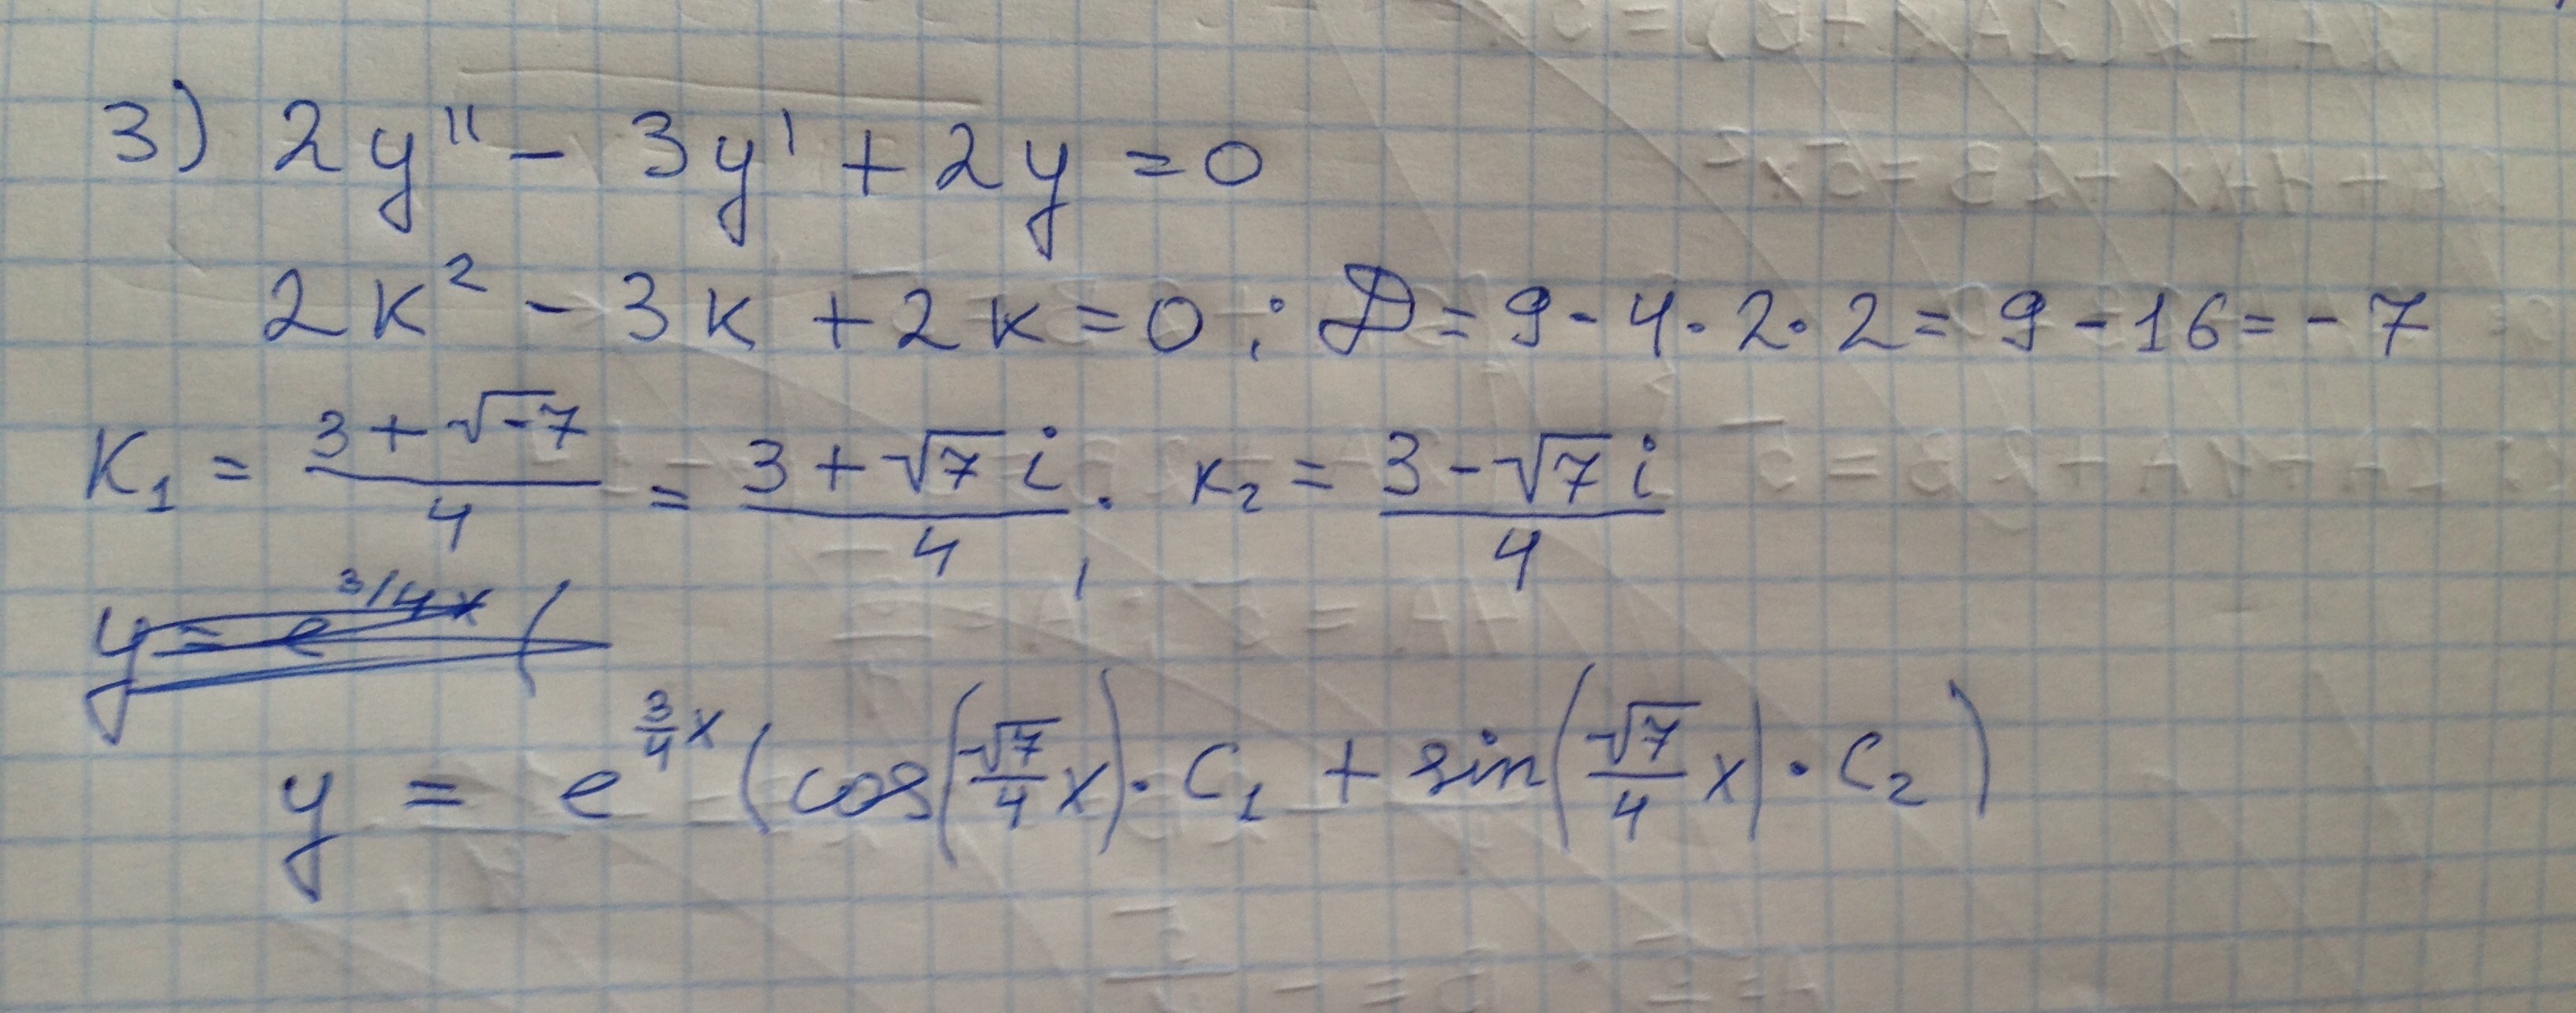 3) 2y'' - 3y' + 2y = 0
2k² - 3k + 2k = 0; D = 9 - 4·2·2 = 9 - 16 = -7
K₁ = (3 + √-7)/4 = (3 + √7 i)/4, k₂ = (3 - √7 i)/4
y = e^(3/4x) (
y = e^(3/4 x) (cos(√7/4 x)·C₁ + sin(√7/4 x)·C₂)